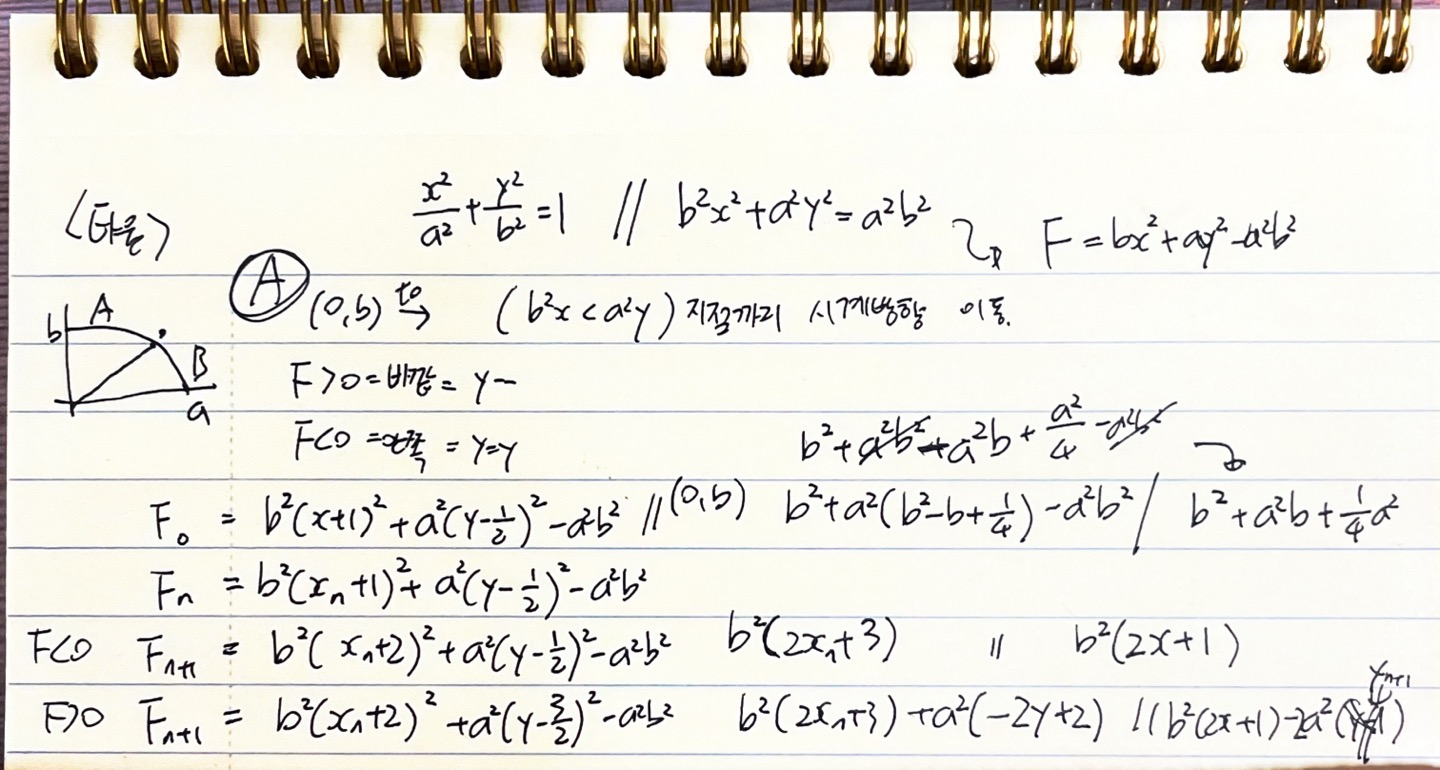 <타원> x²/a² + y²/b² = 1 // b²x² + a²y² = a²b² → F = bx² + ay² - a²b²
Ⓐ (0,b) to → (b²x < a²y) 지점까지 시계방향 이동.
b A B a
F>0 = 바깥 = y-
F<0 = 안쪽 = y=y
b² + a²b² - a²b + a²/4 - a²b²
F₀ = b²(x+1)² + a²(y-1/2)² - a²b² // (0,b) b² + a²(b²-b+1/4) - a²b² / b² + a²b + 1/4 a²
Fn = b²(xn+1)² + a²(y-1/2)² - a²b²
F<0 Fn+1 = b²(xn+2)² + a²(y-1/2)² - a²b² b²(2xn+3) // b²(2x+1)
F>0 Fn+1 = b²(xn+2)² + a²(y-3/2)² - a²b² b²(2xn+3) + a²(-2y+2) // (b²(2x+1) - 2a²(yn+1)